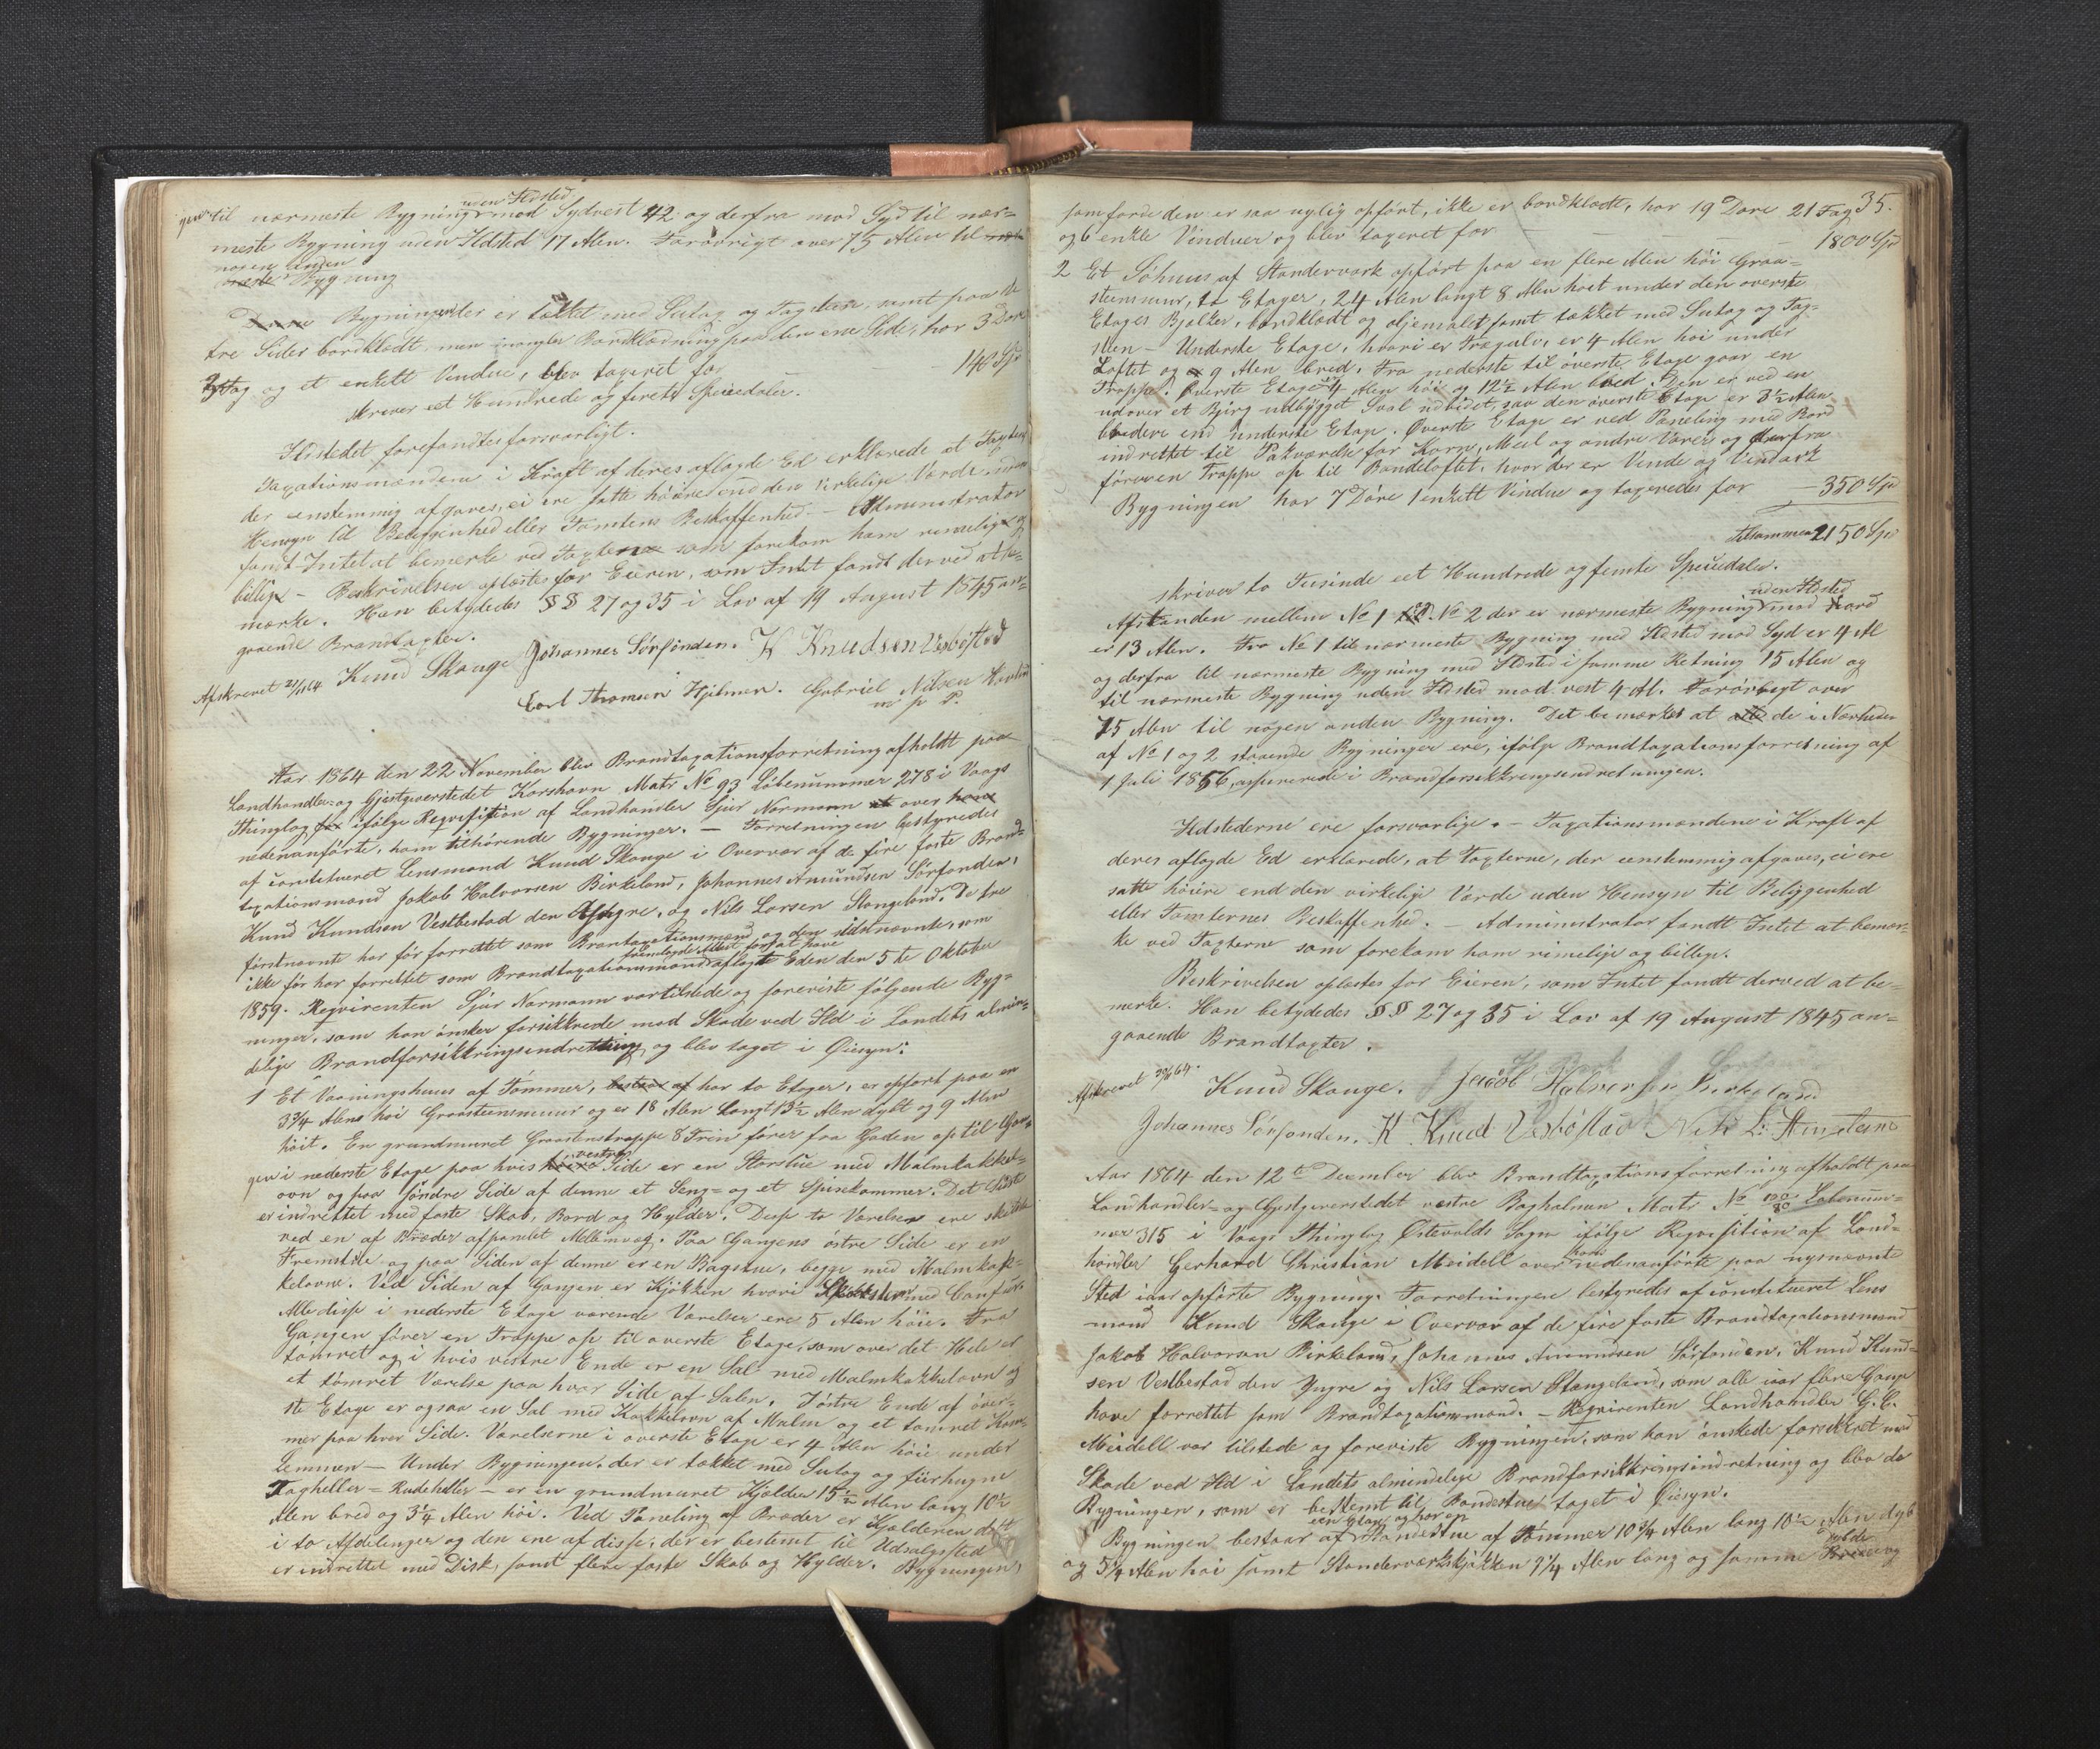 til nærmeste Bygning uden Ildsted mod Sydvest 42 og derfra mod Syd til nær-
meste Bygning uden Ildsted 17 Alen. Forøvrigt over 75 Alen til
nogen anden Bygning
Bygningen der er tækket med Sutag og Tagsteen samt paa de
tre Sider bordklædt men mangler Bordklædning paa den ene Side, har 3 Døre
3 Fag og et enkelt Vindue, blev taxeret for — — 140 Spd
skriver eet Hundrede og fireti Speciedaler.
Ildstedet forefandtes forsvarligt.
Taxationsmændene i Kraft af deres aflagde Ed erklærede at Taxten
der eenstemmig afgaves, ei ere satte høiere end den virkelige Værdi uden
Hensyn til Beliggenhed eller Tomtens Beskaffenhed. — Administrator
fandt Intet at bemærke ved Taxten som forekom ham rimelig og
billig — Beskrivelsen oplæstes for Eieren, som Intet fandt derved at be-
mærke. Han betydedes §§ 27 og 35 i Lov af 19 August 1845 an-
gaaende Brandtaxter.
Afskrevet 21/11 64 Knud Skauge Johannes Sørfonden. K Knudsen Vesbøstad
Carl Thomsen Hjelmen. Gabriel Nilsen
m p P.
Aar 1864 den 22 November blev Brandtaxationsforretning afholdt paa
Landhandler- og Gjestgiverstedet Korshavn Matr No 93 Løbenummer 278 i Vaags
Thinglag ifølge Reqvisition af Landhandler Sjur Normann over
nedenanførte, ham tilhørende Bygninger. — Forretningen bestyredes
af constitueret Lensmand Knud Skauge i Overvær af de fire faste Brand-
taxationsmænd Jakob Halvorsen Birkeland, Johannes Amundsen Sørfonden,
Knud Knudsen Vestbøstad den Yngre, og Nils Larsen Stangeland. De tre
førstnævnte har før forrettet som Brantaxationsmænd og den sidstnævnte, som
ikke før har forrettet som Brandtaxationsmand fremlagde Attest for at have aflagte Eden den 5te Oktober
1859. Reqvirenten Sjur Normann var tilstede og foreviste følgende Byg-
ninger, som han ønsker forsikkrede mod Skade ved Ild i Landets almin-
delige Brandforsikkringsindretning og blev taget i Øiesyn:
1 Et Vaaningshuus af Tømmer, har to Etager, er opført paa en
3¾ Alens høi Graasteensmuur og er 18 Alen langt 13½ Alen dybt og 9 Alen
høit. En grundmuret Graasteenstrappe 8 Trin fører fra Gaden op til Gan-
gen i nederste Etage paa hvis vestre Side er en Storstue med Malmkakkel-
ovn og paa søndre Side af denne et Seng- og et Spisekammer. Det sidste
er indrettet med faste Skab, Bord og Hylder. Disse to Værelser ere skildte
ved en af Bræder afpanlet Mellemvæg. Paa Gangens østre Side er en
Fremstue og paa Siden af denne er en Bagstue, begge med Malmkak-
kelovne. Ved Siden af Gangen er Kjøkken hvori med Comfur.
Alle disse i nederste Etage værende Værelser ere 5 Alen høie. Fra
Gangen fører en Trappe op til øverste Etage, som over det Hele er
tømret og i hvis vestre Ende er en Sal med Malmkakkelovn og
et tømret Værelse paa hver Side af Salen. I østre Ende af øver-
ste Etage er ogsaa en Sal med Kakkelovn af Malm og et tømret Kam-
mer paa hver Side. Værelserne i øverste Etage er 4 Alen høie under
Lemmen — Under Bygningen, der er tækket med Sutag og fiirhugne
Tagheller = Rudeheller — er en grundmuret Kjælder 15½ Alen lang 10½
Alen bred og 3¼ Alen høi. Ved Paneling af Bræder er Kjælderen delt
i to Afdelinger og den ene af disse, der er bestemt til Udsalgssted
er indrettet med Disk, samt flere faste Skab og Hylder. Bygningen,
35.
som fordi den er saa nylig opført, ikke er bordklædt, har 19 Døre 21 Fag
og 6 enkle Vinduer og blev taxeret for — — — 1800 Spd
2 Et Søhuus af Standerværk opført paa en flere Alen høi Graa-
steensmuur, to Etager, 24 Alen langt 8 Alen høit under den øverste
Etages Bjelker, bordklædt og oljemalet samt tækket med Sutag og Tag-
steen — Underste Etage, hvori er Trægulv, er 4 Alen høi under
Loftet og 9 Alen bred. Fra nederste til øverste Etage gaar en
Trappe. Øverste Etage er 4 Alen høi og 12½ Alen bred. Den er ved en
udover et Bjerg udbygget Sval udvidet, saa den øverste Etage er 3½ Alen
bredere end underste Etage. Øverste Etage er ved Paneling med Bord
indrettet til Pakværelse for Korn, Meel og andre Varer og derfra
føreren Trappe op til Bandeloftet, hvor der er Vinde og Vindark
Bygningen har 7 Døre 1 enkelt Vindue og taxeredes for — 350 Spd
Tilsammen 2150 Spd
skriver to Tusinde eet Hundrede og femti Speciedaler.
Afstanden mellem No 1 No 2 der er nærmeste Bygning uden Ildsted mod Nord
er 13 Alen. Fra No 1 til nærmeste Bygning med Ildsted mod Syd er 4 Al
og derfra til nærmeste Bygning med Ildsted i samme Retning 15 Alen og
til nærmeste Bygning uden Ildsted mod vest 4 Al. Forøvrigt over
75 Alen til nogen anden Bygning. Det bemærkes at de i Nærheden
af No 1 og 2 staaende Bygninger ere, ifølge Brandtaxationsforretning af
1 Juli 1856, assurerede i Brandforsikkringsindretningen.
Ildstederne ere forsvarlige. — Taxationsmændene i Kraft af
deres aflagde Ed erklærede, at Taxterne, der eenstemmig afgaves, ei ere
satte høiere end den virkelige Værde uden Hensyn til Beliggenhed
eller Tomternes Beskaffenhed. — Administrator fandt Intet at bemær-
ke ved Taxterne som forekom ham rimelige og billige.
Beskrivelsen oplæstes for Eieren, som Intet fandt derved at be-
mærke. Han betydedes §§ 27 og 35 i Lov af 19 August 1845 an-
gaaende Brandtaxter.
Afskrevet 30/11 64. Knud Skauge. Jacob Halversen Birkeland
Johannes Sørfonden. K Knud Vesbøstad Nils L. Stangeland
Aar 1864 den 12te December blev Brandtaxationsforretning afholdt paa
Landhandler- og Gjestgiverstedet vestre Bagholmen Matr No Løbenum-
mer 315 i Vaags Thinglag Østevolds Sogn ifølge Reqvisition af Land-
handler Gerhard Christian Meidell over hans nedenanførte paa nysnævnte
Sted iaar opførte Bygning. Forretningen bestyredes af constitueret Lens
mand Knud Skauge i Overvær af de fire faste Brandtaxationsmænd
Jakob Halvorsen Birkeland, Johannes Amundsen Sørfonden, Knud Knud-
sen Vestbøstad den Yngre og Nils Larsen Stangeland, som alle iaar flere Gange
have forrettet som Brandtaxationsmænd. — Reqvirenten Landhandler G. C.
Meidell var tilstede og foreviste Bygningen, som han ønskede forsikret mod
Skade ved Ild i Landets almindelige Brandforsikkringsindretning og blev da
Bygningen, som er bestemt til Bondestue taget i Øiesyn.
Bygningen bestaar af een Etage og har en Bondestue af Tømmer 10¾ Alen lang 10½ Alen dyb
og 5¼ Alen høi samt Standerværkskjøkken 7¼ Alen lang og samme